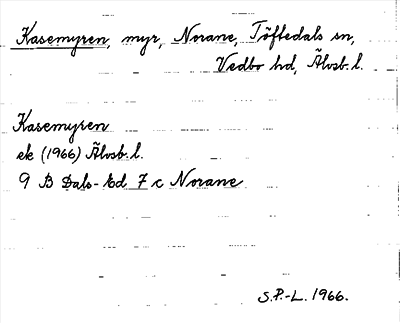 Kasemyren, myr, Norane, Töftedals sn,
Vedbo hd, Älvsb. l.
Kasemyren
ek (1966) Älvsb. l.
9 B Dals-Ed 7 c Norane
S.P.-L. 1966.